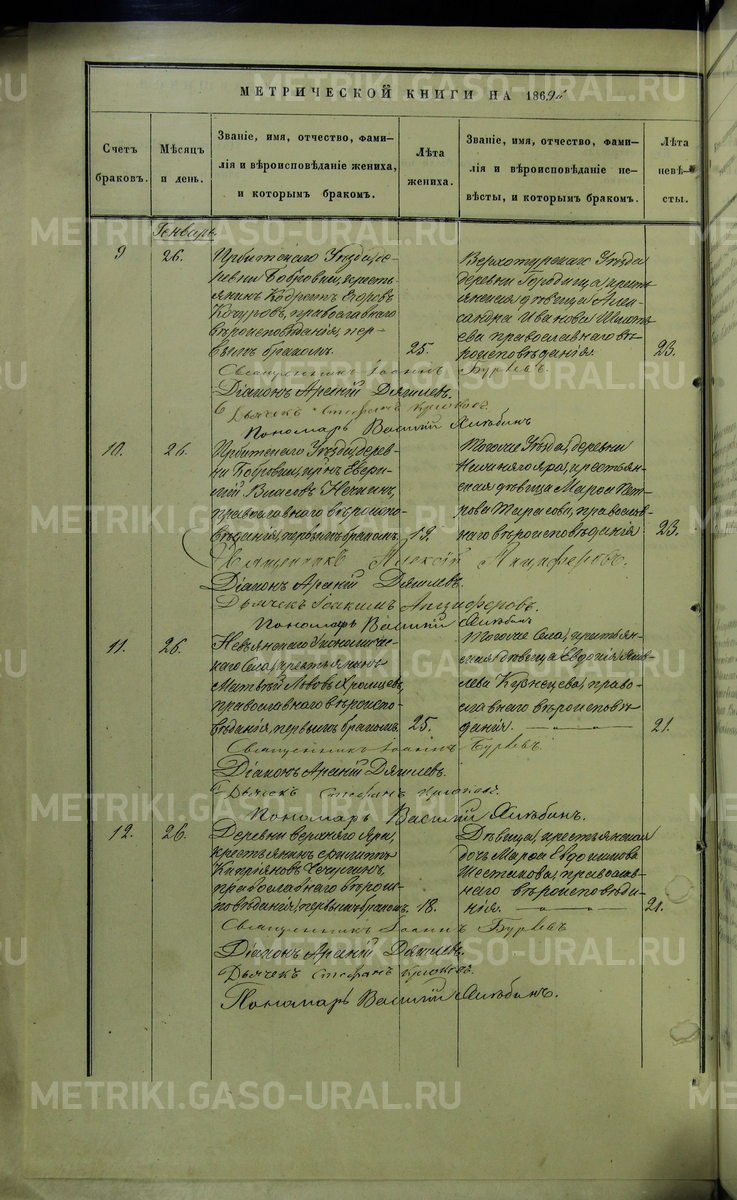 МЕТРИЧЕСКОЙ КНИГИ НА 1869й
Счетъ
браковъ.
Мѣсяцъ
и день.
Званіе, имя, отчество, фами-
лія и вѣроисповѣданіе жениха,
и которымъ бракомъ.
Лѣта
жениха.
Званіе, имя, отчество, фами-
лія и вѣроисповѣданіе не-
вѣсты, и которымъ бракомъ.
Лѣта
невѣ-
сты.
Генварь
9
26.
Ирбитскаго Уѣзда, де-
ревни Бобровки, кресть-
янинъ Кодратъ Егоровъ
Кочуровъ, православнаго
вѣроисповѣданія, пер-
вымъ бракомъ.
25.
Верхотурскаго Уѣзда
деревни Городища, кресть-
янская дѣвица Алек-
сандра Иванова
православнаго вѣ-
роисповѣданія.
23.
Священникъ Іоаннъ Бурьевъ.
Діаконъ Арсеній Дягилевъ.
Дьячекъ Стефанъ Крюковъ.
Пономарь Василій Хлѣбинъ
10.
26.
Ирбитскаго Уѣзда, дерев-
ни Бобровки,
Власовъ
православнаго вѣроиспо-
вѣданія, первымъ бракомъ.
19.
Тогоже Уѣзда, деревни
Нижняго яра, крестьян-
ская дѣвица Марѳа Пет-
рова Тарасова, православ-
наго вѣроисповѣданія
23.
Священникъ Алексій Анциферовъ.
Діаконъ Арсеній Дягилевъ
Дьячекъ Іоакимъ Анциферовъ.
Пономарь Василій Хлѣбинъ
11.
26.
Невьянскаго Экономиче-
скаго Села, крестьянинъ
Матвѣй Львовъ Хромцевъ,
православнаго вѣроиспо-
вѣданія, первымъ бракомъ.
25.
Тогоже Села, крестьян-
ская дѣвица Евдокія Яков-
лева Кузнецова, право-
славнаго вѣроисповѣ-
данія.
21.
Священникъ Іоаннъ Бурьевъ
Діаконъ Арсеній Дягилевъ.
Дьячекъ Стефанъ Крюковъ
Пономарь Василій Хлѣбинъ.
12.
26.
Деревни верхняго Яра,
крестьянинъ Филиппъ
Кипріяновъ Чечулинъ,
православнаго вѣроис-
повѣданія, первымъ бракомъ.
18.
Дѣвица, крестьянская
дочь Марѳа Евдокимова
Шестакова, православ-
наго вѣроисповѣда-
нія.
21.
Священникъ Іоаннъ Бурьевъ
Діаконъ Арсеній Дягилевъ.
Дьячекъ Стефанъ Крюковъ.
Пономарь Василій Хлѣбинъ.
METRIKI.GASO-URAL.RU